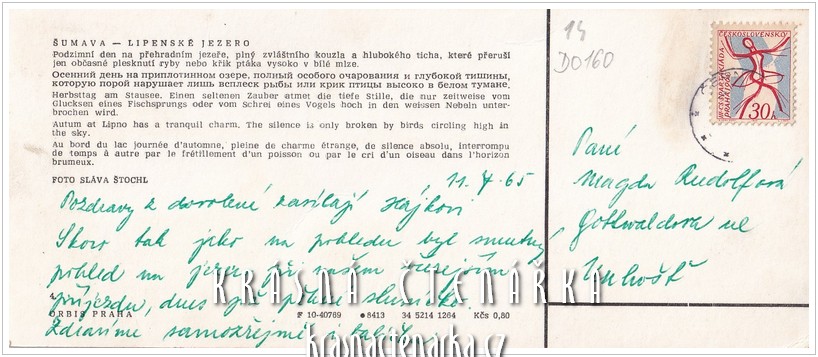 14
DO160
ŠUMAVA — LIPENSKÉ JEZERO
Podzimní den na přehradním jezeře, plný zvláštního kouzla a hlubokého ticha, které přeruší
jen občasné plesknutí ryby nebo křik ptáka vysoko v bílé mlze.
Осенний день на приплотинном озере, полный особого очарования и глубокой тишины,
которую порой нарушает лишь всплеск рыбы или крик птицы высоко в белом тумане.
Herbsttag am Stausee. Einen seltenen Zauber atmet die tiefe Stille, die nur zeitweise vom
Glucksen eines Fischsprungs oder vom Schrei eines Vogels hoch in den weissen Nebeln unter-
brochen wird.
Autum at Lipno has a tranquil charm. The silence is only broken by birds circling high in
the sky.
Au bord du lac journée d'automne, pleine de charme étrange, de silence absolu, interrompu
de temps á autre par le frétillement d'un poisson ou par le cri d'un oiseau dans l'horizon
brumeux.
FOTO SLÁVA ŠTOCHL
11. 7. 65
Pozdravy z dovolené zasílají Hájkovi
Skoro tak jako na pohledu byl smutný
pohled na jezero při našem včerejším
příjezdu, dnes již pěkné sluníčko.
Zdravíme samozřejmě i
ORBIS PRAHA
F 10-40769 ●8413 34 5214 1264 Kčs 0,80
ČESKOSLOVENSKO
30h
Paní
Magda Rudolfová
Gottwaldova ul
Unhošť
KRÁSNÁ ČTENÁŘKA
krasnactenarka.cz